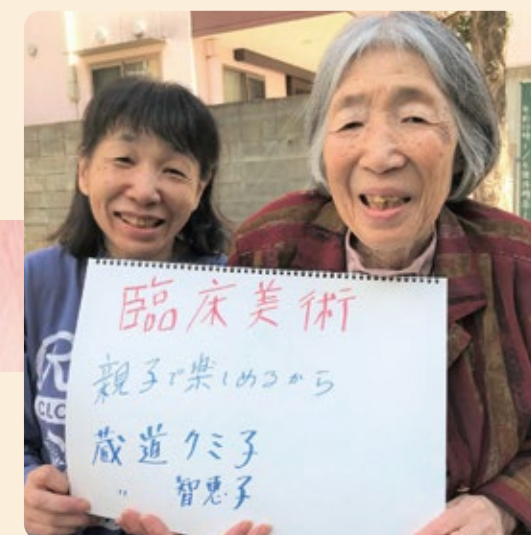 臨床美術
親子で楽しめるから
蔵道クミ子
〃 智恵子
CLO